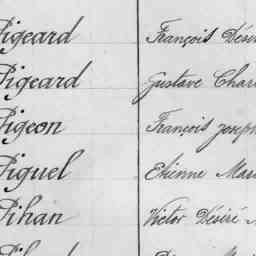 Pigeard François Dési
Pigeard Gustave Char
Pigeon François Joseph
Piquel Etienne Mar
Pihan Victor Désiré